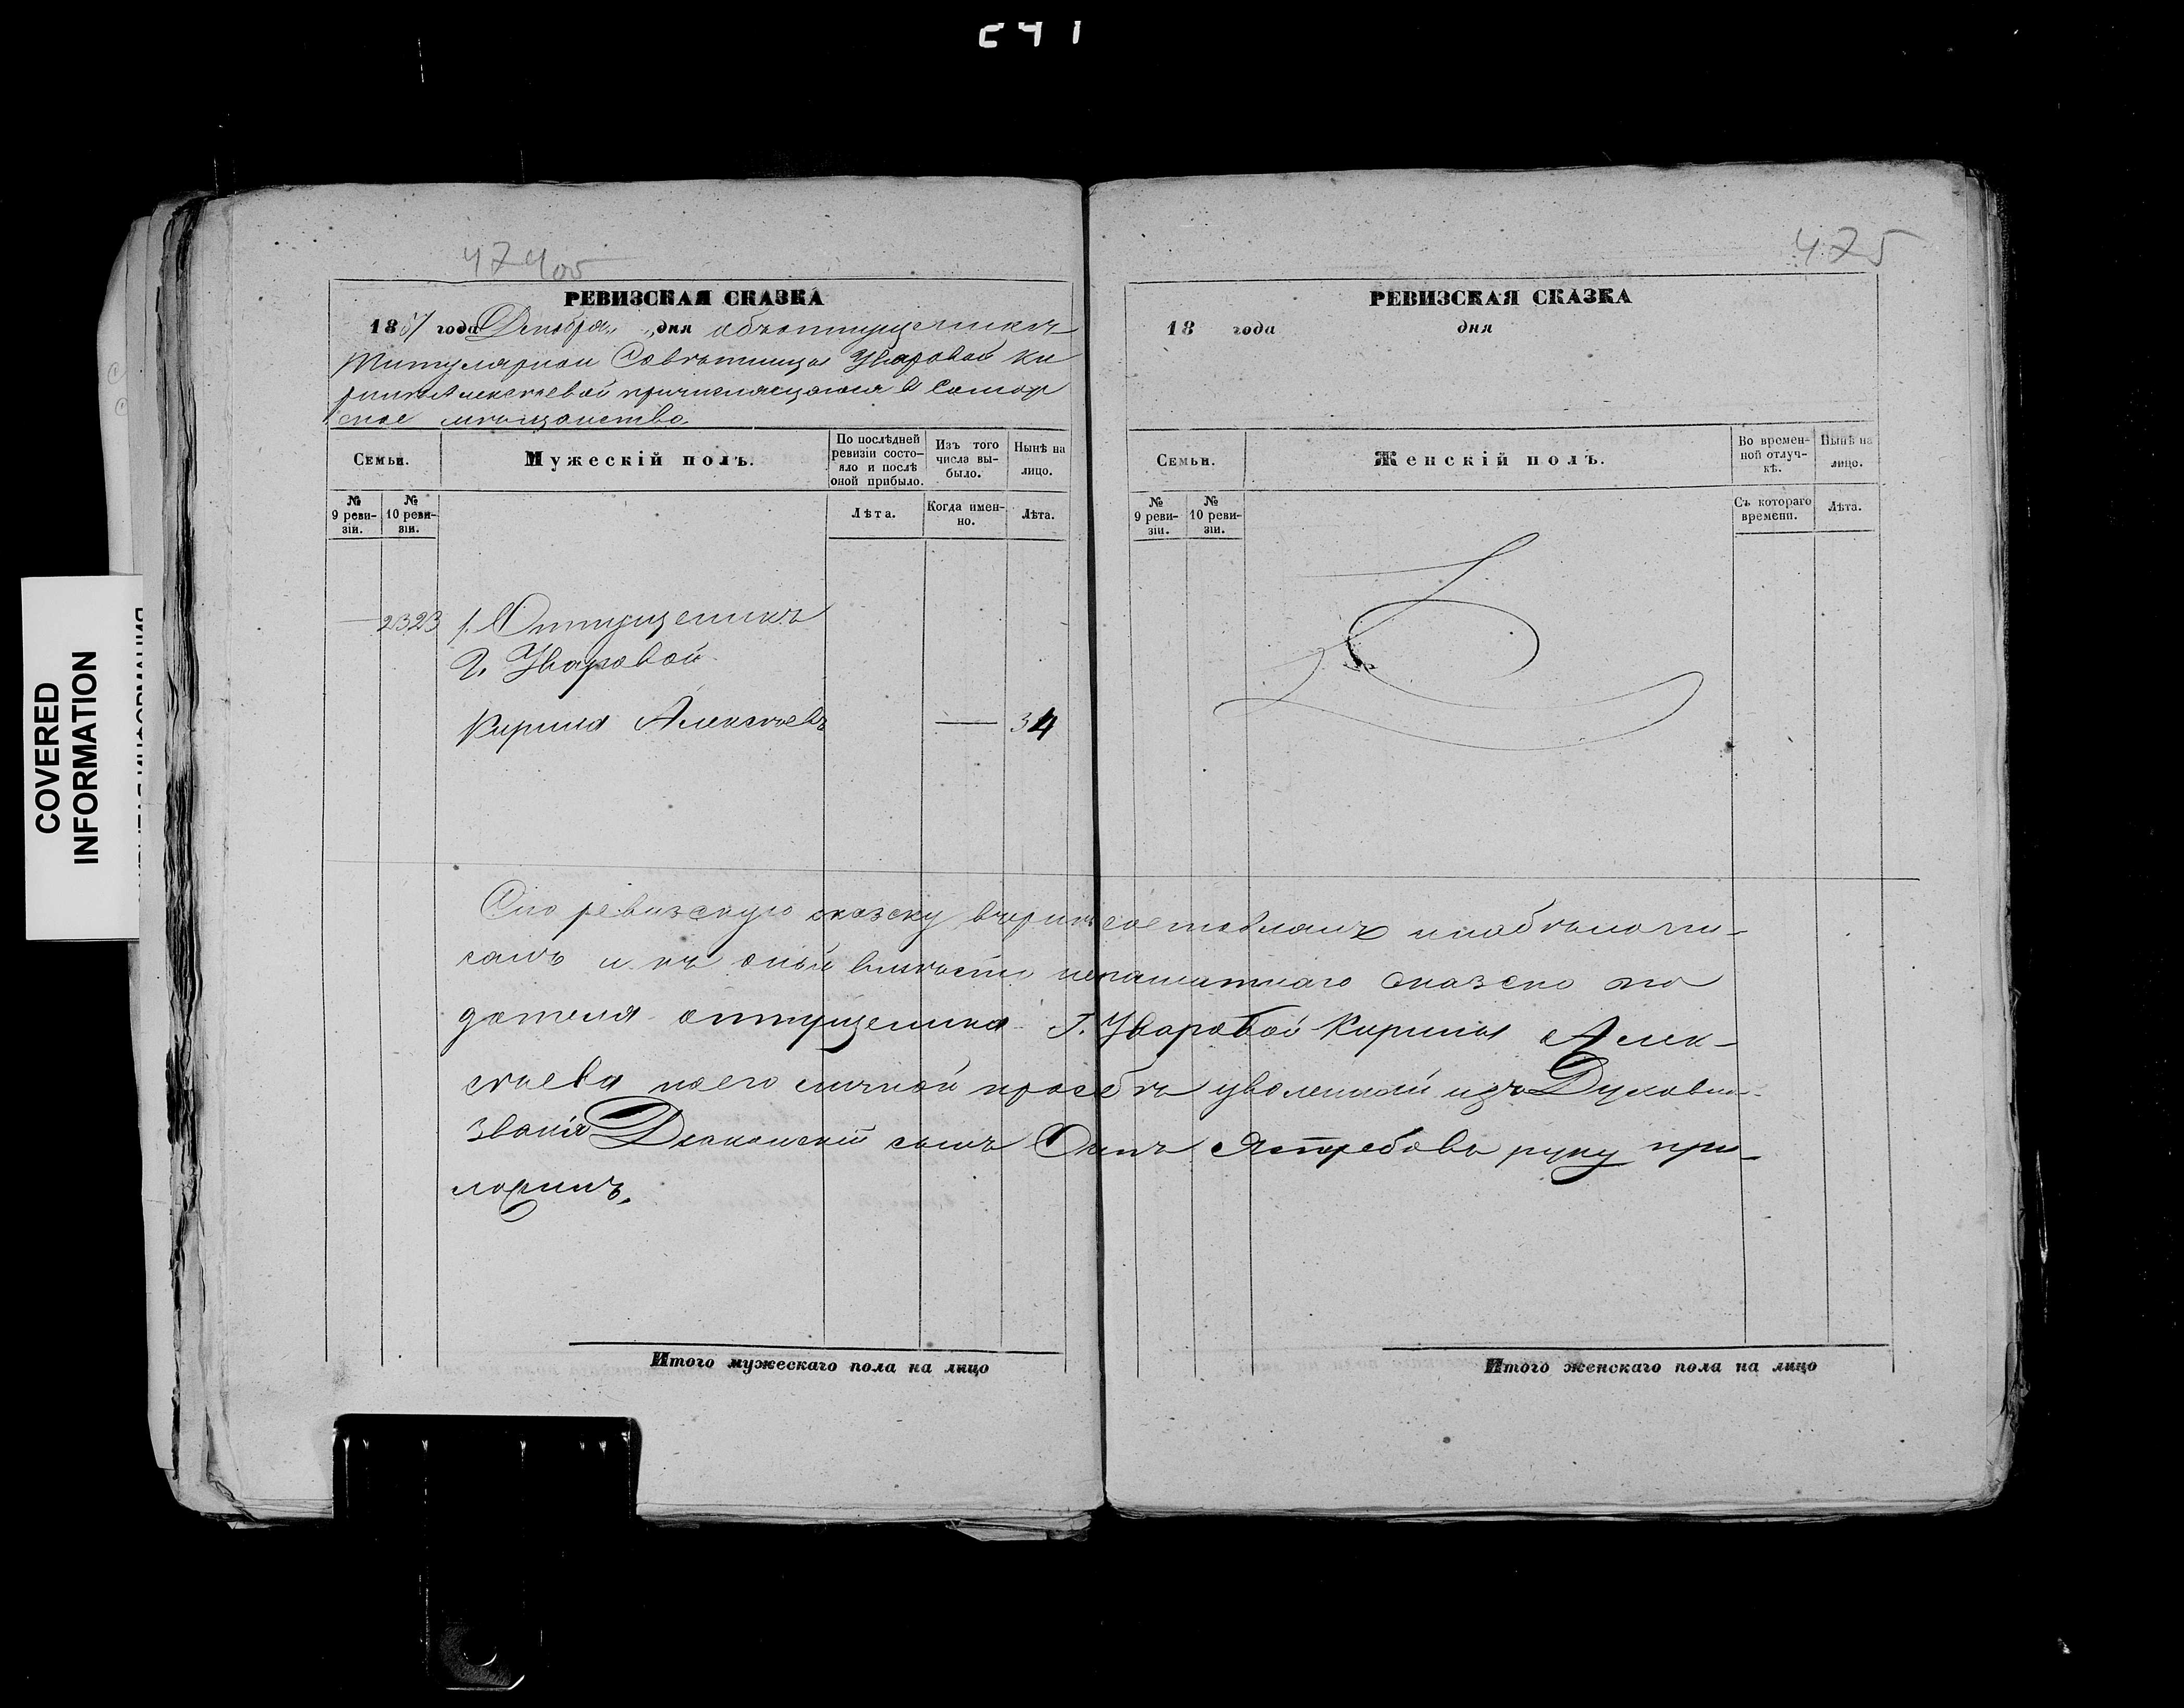 474об
475
РЕВИЗСКАЯ СКАЗКА
1857 года Декабря дня объ отпущеникѣ
Титулярной Совѣтницы Уваровой Ки
рилѣ Алексѣевой причисляющаюся в Самар
ское мѣщанство.
Семьи.
Мужескій полъ.
По послѣдней ревизіи состояло и послѣ оной прибыло.
Изъ того числа выбыло.
Нынѣ на лицо.
№ 9 ревизіи.
№ 10 ревизіи.
Лѣта.
Когда именно.
Лѣта.
2323 1. Отпущеникъ
Г. Уваровой
Кирила Алексѣевъ — 34
РЕВИЗСКАЯ СКАЗКА
18 года дня
Семьи.
Женскій полъ.
Во временной отлучкѣ.
Нынѣ на лицо.
№ 9 ревизіи.
№ 10 ревизіи.
Съ котораго времени.
Лѣта.
Сію ревизскую сказку
самъ и къ оной вмѣсто неграматнаго сказко по
дателя отпущеника Г. Уваровой Кирилы Алек-
сѣева по его личной прозбѣ уволенный изъ Духовна
званія Дьяконскій сынъ Ястребовъ руку при-
ложилъ.
Итого мужескаго пола на лицо
Итого женскаго пола на лицо
COVERED
INFORMATION